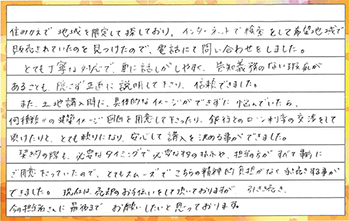 住みかえで地域を限定して探しており、インターネットで検索をして希望地域で
販売されていたのを見つけたので、電話にて問い合わせをしました。
とても丁寧な対応で、更に話しがしやすく、告知義務のない瑕疵が
あることも、隠さず正直に説明して下さり、信頼できました。
また、土地購入時に、具体的なイメージができずに悩んでいたら、
何種類かの建築イメージ図面を用意して下さったり、銀行とのローン利率の交渉をして
下さったりと、とても頼りになり、安心して購入を決める事ができました。
契約の際も、必要なタイミングで必要なものを、担当の方がすべて事前に
ご用意下さっていたので、とてもスムーズでこちらの精神的負担がなく手続きする事が
できました。現在は、売却のお手伝いをして頂いておりますが、引き続き、
今の担当さんに最後までお願いしたいと思っております。